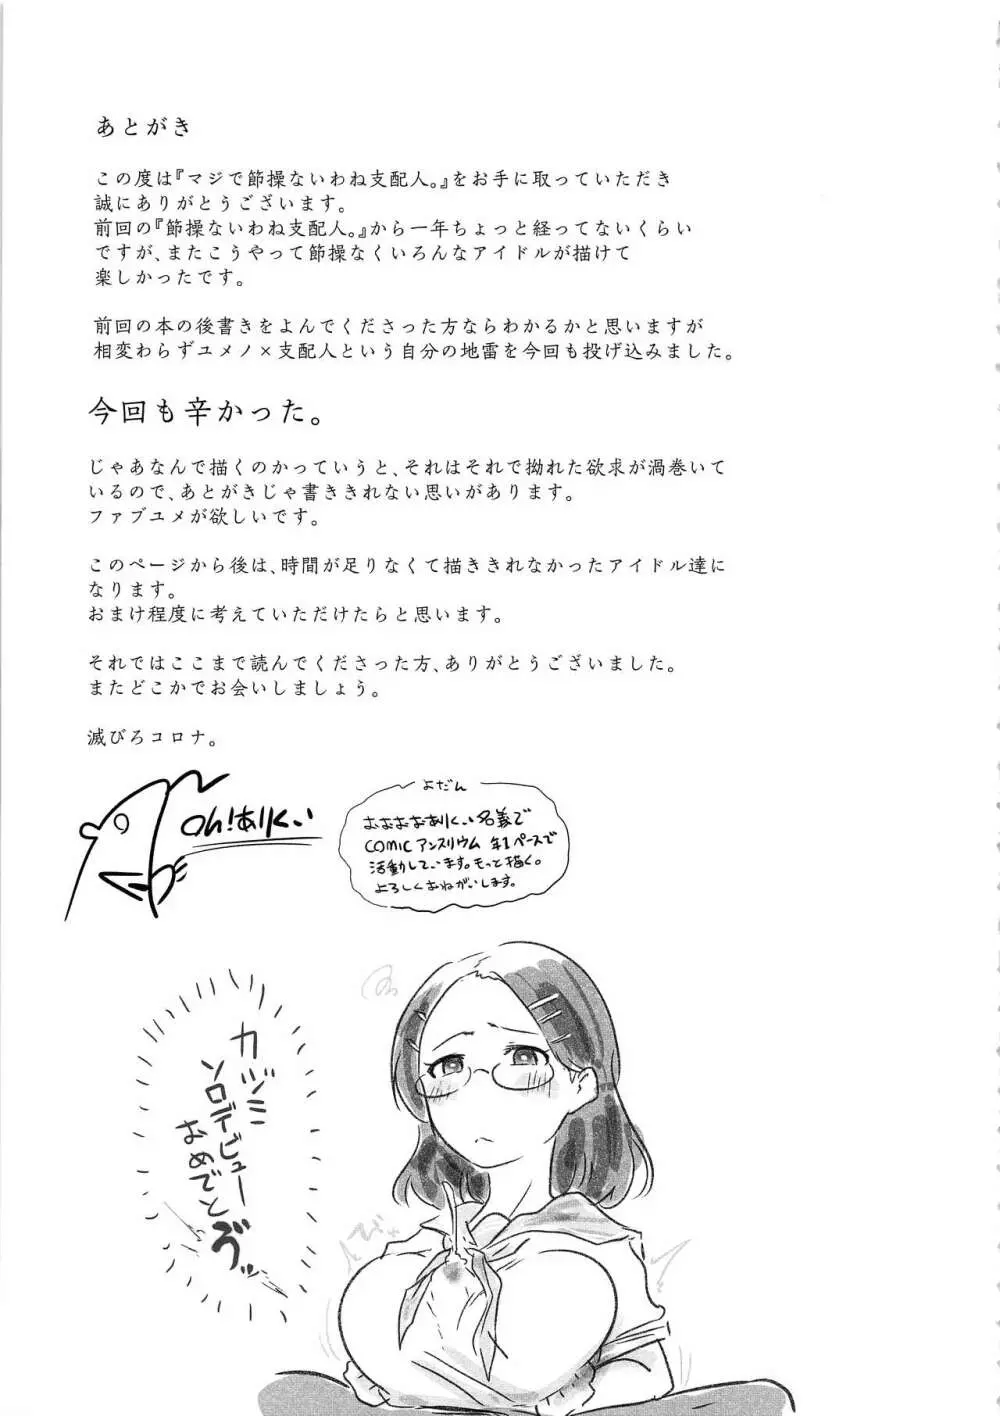 あとがき
この度は『マジで節操ないわね支配人。』をお手に取っていただき
誠にありがとうございます。
前回の『節操ないわね支配人。』から一年ちょっと経ってないくらい
ですが、またこうやって節操なくいろんなアイドルが描けて
楽しかったです。
前回の本の後書きをよんでくださった方ならわかるかと思いますが
相変わらずユメノ×支配人という自分の地雷を今回も投げ込みました。
今回も辛かった。
じゃあなんで描くのかっていうと、それはそれで拗れた欲求が渦巻いて
いるので、あとがきじゃ書ききれない思いがあります。
ファブユメが欲しいです。
このページから後は、時間が足りなくて描ききれなかったアイドル達に
なります。
おまけ程度に考えていただけたらと思います。
それではここまで読んでくださった方、ありがとうございました。
またどこかでお会いしましょう。
滅びろコロナ。
Oh!ありくい
よだん
おおおおありくい名義で
COMIC アンスリウム 年1ペースで
活動しています。もっと描く。
よろしくおねがいします。
カヅミ
ソロデビュー
おめでとゔ